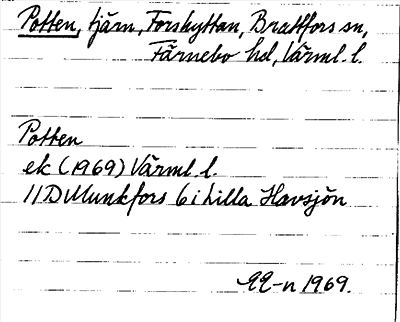 Potten, tjärn, Forshyttan, Brattfors sn,
Färnebo hd, Värml. l.
Potten
ek (1969) Värml. l.
11D Munkfors 6 i Lilla Havsjön
1969.